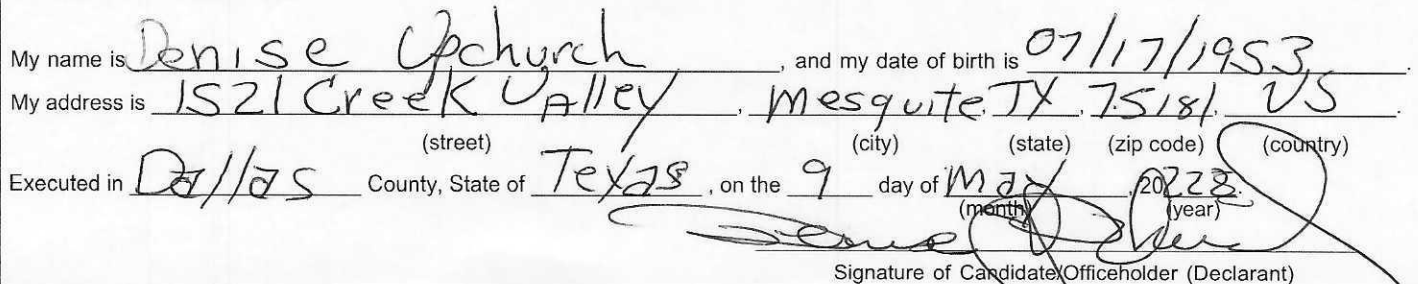 My name is Denise Upchurch, and my date of birth is 07/17/1953.
My address is 1521 Creek VAlley, Mesquite, TX, 75181, US.
(street) (city) (state) (zip code) (country)
Executed in Dallas County, State of Texas, on the 9 day of May, 20
(month) (year)
Signature of Candidate/Officeholder (Declarant)